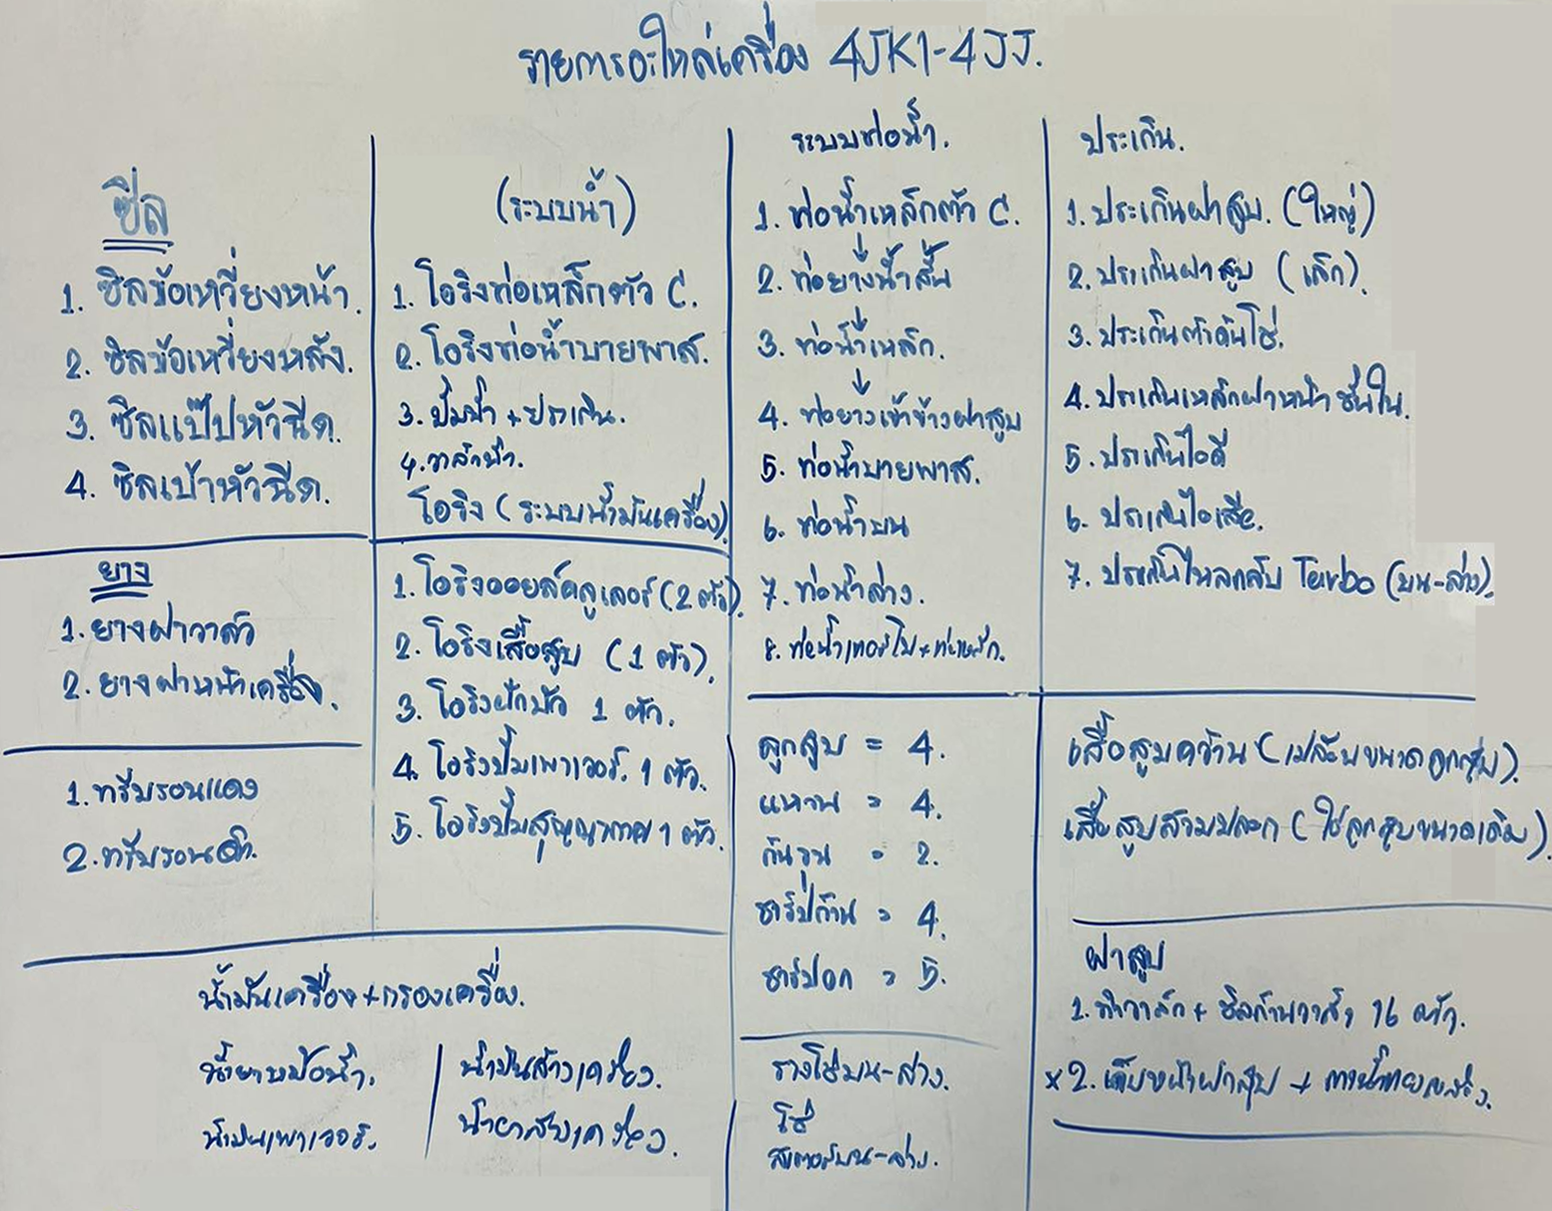 รายการอะไหล่เครื่อง 4JK1-4JJ.
ซีล
1. ซีลข้อเหวี่ยงหน้า.
2. ซีลข้อเหวี่ยงหลัง.
3. ซีลแป๊ปหัวฉีด.
4. ซีลเบ้าหัวฉีด.
ยาง
1. ยางฝาวาล์ว
2. ยางฝาหน้าเครื่อง.
1. ทรีบอนแดง
2. ทรีบอนดำ.
(ระบบน้ำ)
1. โอริงท่อเหล็กตัว C.
2. โอริงท่อน้ำบายพาส.
3. ปั้มน้ำ + ประเก็น.
4. วาล์วน้ำ.
โอริง (ระบบน้ำมันเครื่อง)
1. โอริงออยล์คลูเลอร์ (2 ตัว).
2. โอริงเสื้อสูบ (1 ตัว).
3. โอริงฝักบัว 1 ตัว.
4. โอริงปั้มเพาเวอร์. 1 ตัว.
5. โอริงปั้มสุญญากาศ 1 ตัว.
น้ำมันเครื่อง + กรองเครื่อง.
น้ำยาหม้อน้ำ.
น้ำมันเพาเวอร์.
น้ำมันล้างเครื่อง.
น้ำยาเครื่อง.
ระบบท่อน้ำ.
1. ท่อน้ำเหล็กตัว C.
2. ท่อยางน้ำสั้น
3. ท่อน้ำเหล็ก.
4. ท่อยางเข้าข้างฝาสูบ
5. ท่อน้ำบายพาส.
6. ท่อน้ำบน
7. ท่อน้ำล่าง.
8. ท่อน้ำเทอร์โบ + ท่อเหล็ก.
ลูกสูบ = 4.
แหวน = 4.
กันรุน = 2.
ชาร์ปก้าน = 4.
ชาร์ปอก = 5.
รางโซ่บน-ล่าง.
โซ่
สเตอร์บน-ล่าง.
ประเก็น.
1. ประเก็นฝาสูบ. (ใหญ่)
2. ประเก็นฝาสูบ (เล็ก).
3. ประเก็นตัวดันโซ่.
4. ประเก็นเหล็กฝาหน้า ชั้นใน.
5. ประเก็นไอดี
6. ประเก็นไอเสีย.
7. ประเก็นไหลกลับ Turbo (บน-ล่าง).
เสื้อสูบคว้าน (เปลี่ยนขนาดลูกสูบ).
เสื้อสูบสวมปลอก (ใช้ลูกสูบขนาดเดิม).
ฝาสูบ
1. ทำวาล์ว + ซีลก้านวาล์ว 16 ตัว.
x 2. เก็บหน้าฝาสูบ +